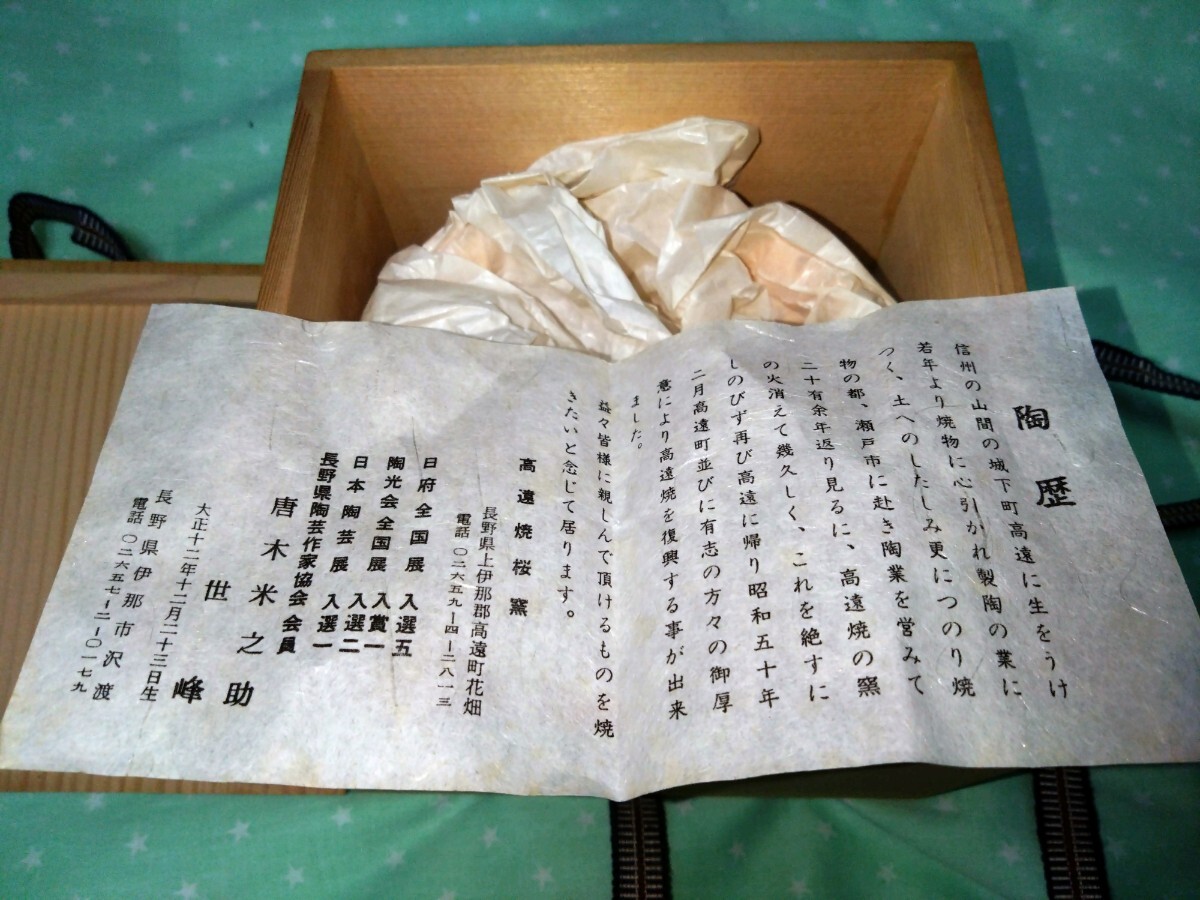 陶歴
信州の山間の城下町高遠に生をうけ
若年より焼物に心引かれ製陶の業に
つく、土へのしたしみ更につのり焼
物の都、瀬戸市に赴き陶業を営みて
二十有余年返り見るに、高遠焼の窯
の火消えて幾久しく、これを絶すに
しのびず再び高遠に帰り昭和五十年
二月高遠町並びに有志の方々の御厚
意により高遠焼を復興する事が出来
ました。
益々皆様に親しんで頂けるものを焼
きたいと念じて居ります。
高遠焼桜窯
長野県上伊那郡高遠町花畑
電話 〇二六五九―四―二八一三
日府全国展 入選五
陶光会全国展 入賞一
日本陶芸展 入選二
長野県陶芸作家協会会員 入選一
唐木米之助
世峰
大正十二年十二月二十三日生
長野県伊那市沢渡
電話 〇二六五七―二―〇一七九